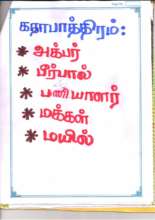 கதாபாத்திரம்:
* அக்பர்
* பீர்பால்
* பணியாளர்
* மக்கள்
* மயில்